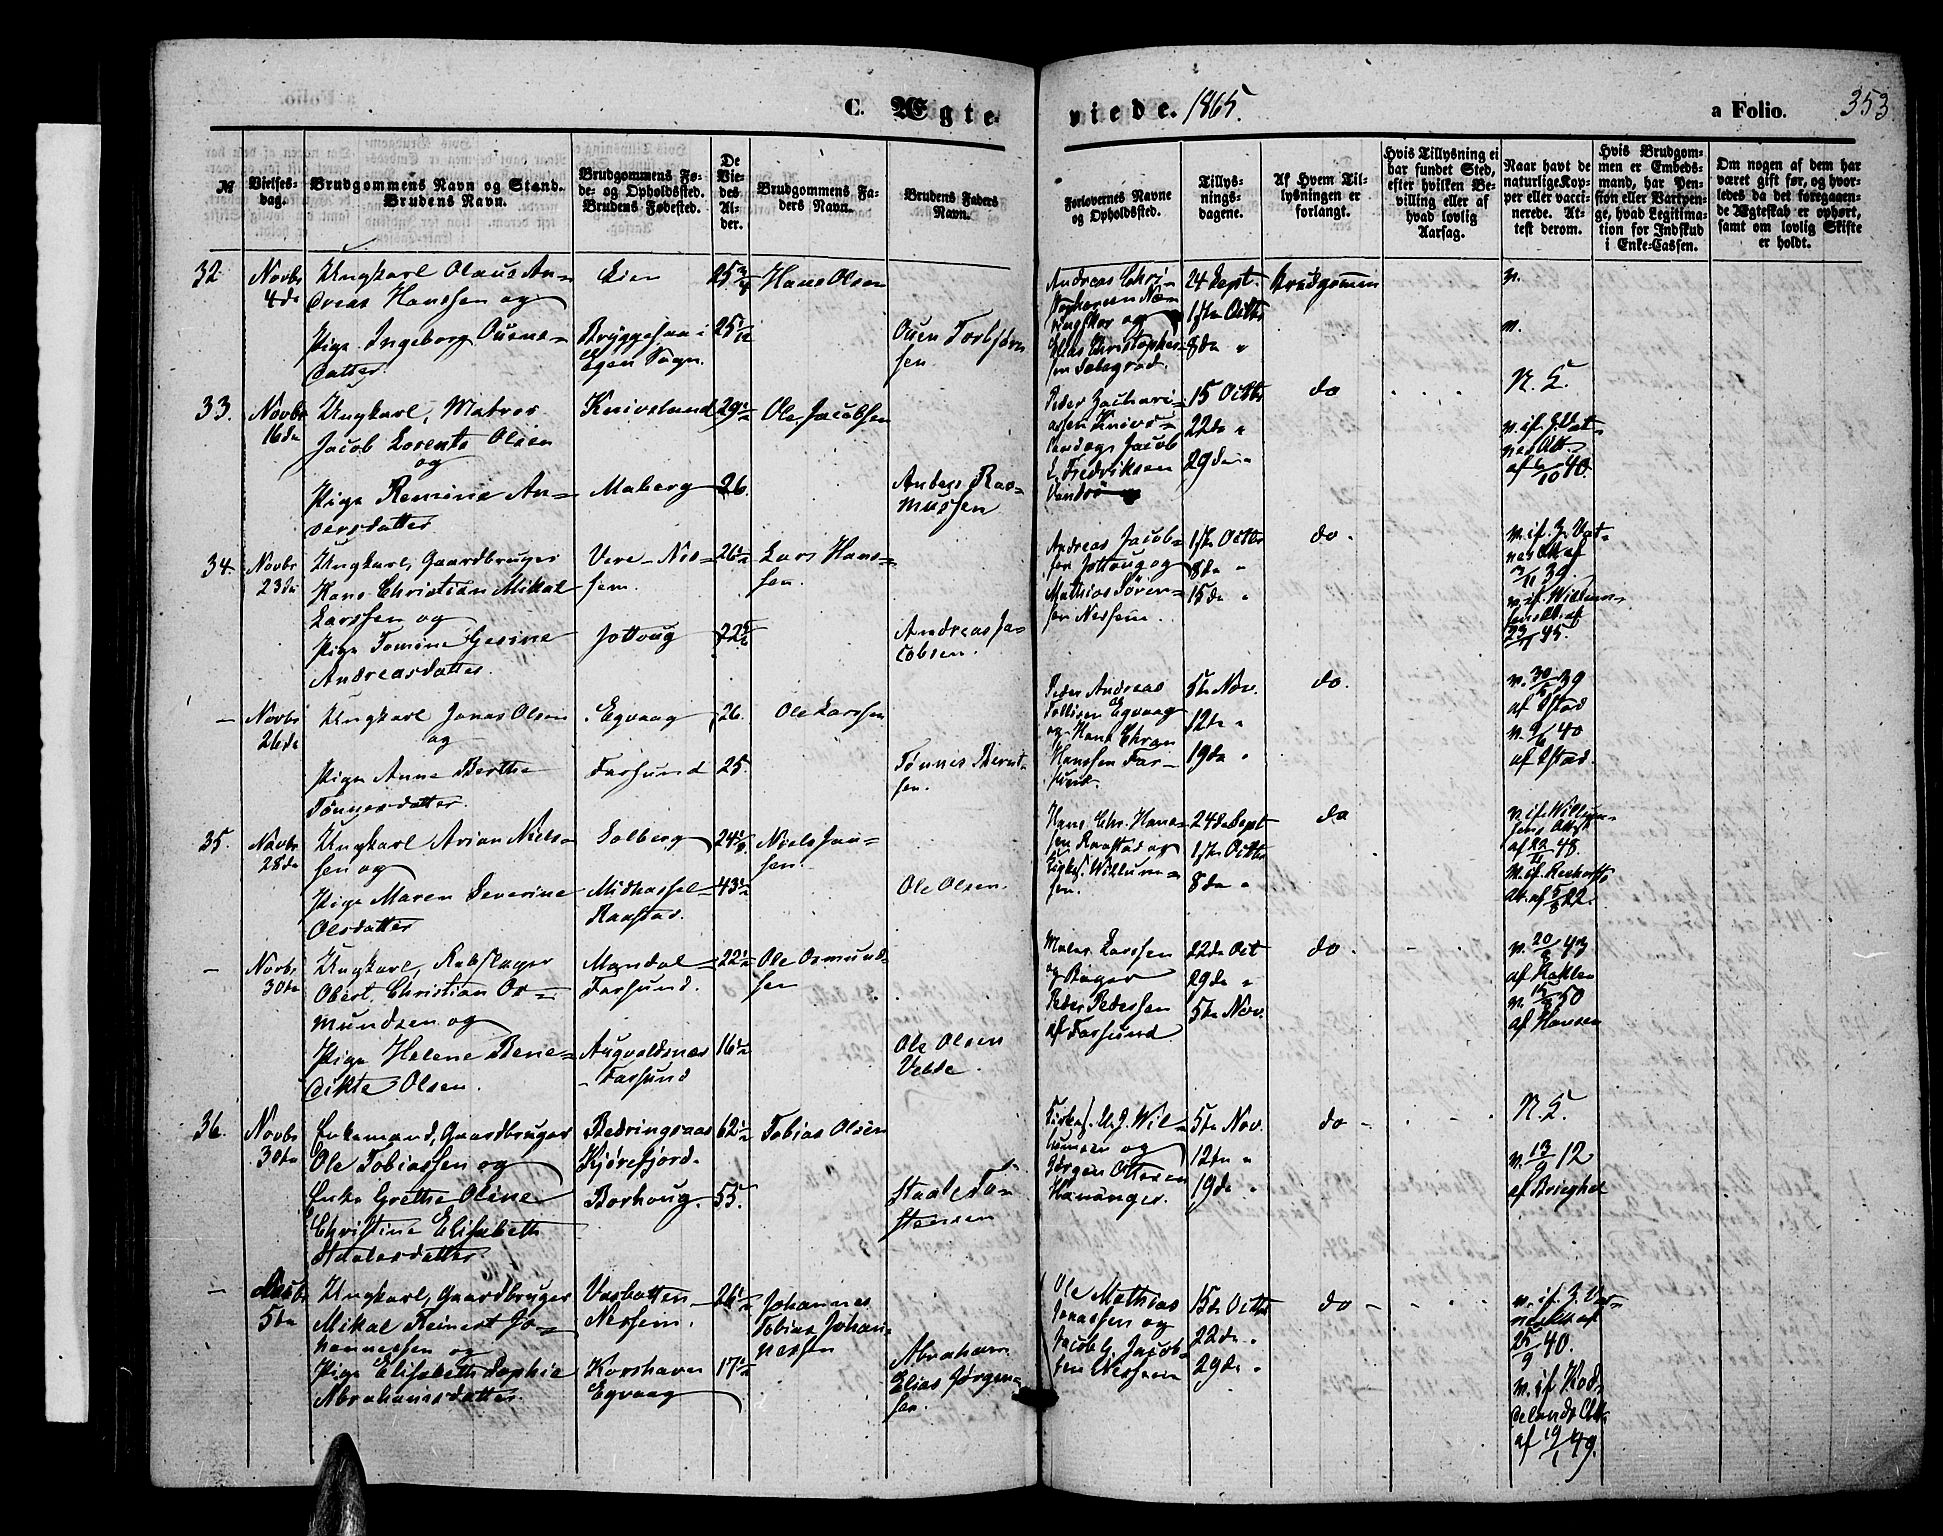 C. Ægte
viede. 1865.
a Folio. 353
№
Vielses-
dag.
Brudgommens Navn og Stand.
Brudens Navn.
Brudgommens Fø-
de- og Opholdssted.
Brudens Fødested.
De
Vie-
des
Al-
der.
Brudgommens Fa-
ders Navn.
Brudens Faders
Navn.
Forlovernes Navne
og Opholdssted.
Tillys-
nings-
dagene.
Af Hvem Til-
lysningen er
forlangt.
Hvis Tillysning ei
har fundet Sted,
efter hvilken Be-
villing eller af
hvad lovlig
Aarsag.
Naar havt de
naturlige Kop-
per eller vacci-
nerede. At-
test derom.
Hvis Brudgom-
men er Embeds-
mand, har Pen-
sion eller Vartpen-
ge, hvad Legitima-
tion for Indskud
i Enke-Cassen.
Om nogen af dem har
været gift før, og hvor-
ledes da det foregaaen-
de Ægteskab er ophørt,
samt om lovlig Skifte
er holdt.
32
Novbr
4de
Ungkarl Olaus An-
dreas Hanssen og
Pige Ingeborg Ouens-
datter.
Eien
Bryggesaa i
Egen Sogn.
25 3/4
25 1/12
Hans Olsen
Ouen Torbjørn
sen.
Andreas Chri-
og
Elias Christophes-
sen
24 Sept.
1ste Octbr
8de "
Brudgommen
v.
v.
33.
Novbr
16de
Ungkarl, Matros
Jacob Lorents Olsen
og
Pige Remine An-
dersdatter
Knivsland
Maberg
29 1/2
26.
Ole Jacobsen
Anders Ras-
mussen
Peder Zachari-
assen Knivs-
land og Jacob
L. Fredriksen
15 Octbr
22de "
29de "
do
N. L.
v. if. Z. Vat-
nes Att.
af 6/10 40.
34.
Novbr
23de
Ungkarl, Gaardbruger
Hans Christian Mikal
Larssen og
Pige Tomine Gesine
Andreasdatter.
Vere- Nes-
sem.
Jottoug
26 1/2
Lars Hans-
sen.
Andreas Ja-
cobsen.
Andreas Jacob-
sen Jottoug og
Mathias Søren-
sen Nessem.
1ste Octbr
8de "
15de "
do.
v. if. Z. Vat-
nes Att. af
3/11 39.
v. if. Willum-
sens Att. af
45.
-
Novbr
26de
Ungkarl Jonas Olsen
og
Pige Anne Berthe
Tønnesdatter.
Egvaag
Farsund
26.
25.
Ole Larssen
Tønnes Bernt-
sen.
Peder Andreas
Tollisen Egvaag
og Hans Chran
Hanssen Far-
sund.
5te Nov.
12de "
19de "
do.
v. 39
v. 9/6 40
35.
Novbr
28de
Ungkarl Arian Niels-
sen og
Pige Maren Severine
Olsdatter
Solberg
Midhassel-
Raastad.
43 1/2
Niels Jan-
sen.
Ole Olsen.
Hans Chr. Hans-
sen Raastad og
Kirkes. Willum-
sen.
24de Sept
1ste Octbr
8de "
do
v. if. Willum-
sens Attest
af 22/11 48.
v. if.
At. af 5/8 22.
-
Novbr
30te
Ungkarl, Rebslager
Obert Christian Os-
mundsen og
Pige Helene Bene-
dikte Olsen.
Mandal-
Farsund.
Augvaldsnæs
- Farsund
22 1/2
16 1/2
Ole Osmund-
sen
Ole Olsen
Velde.
Maler Larssen
og Bager
Peder Pederssen
af Farsund
22de Oct
29de "
5te Nov.
do
af Hansen
36.
Novbr
30te
Enkemand, Gaardbruger
Ole Tobiassen og
Enke Grethe Oline
Christine Elisabeth
Staalesdatter
Bedringsaas
Kjørefjord.
Borhoug.
62 1/2
55.
Tobias Olsen
Staale To-
stensen
Kirkes. Wil-
lumsen og
Jørgen Ottesen
Hananger.
5te Nov.
12te "
19de "
do
N. L.
v. 13/9 12
-
5te
Ungkarl, Gaardbruger
Mikal Reinert Jo-
hannessen og
Pige Elisabeth Sophie
Abrahamsdatter.
Varbatten
Nessem.
Korshavn
Egvaag
26 1/2
17 1/2
Johannes
Tobias Johan-
nessen
Abraham
Elias Jørgen-
sen.
Ole Mathias
Jonassen og
Jacob G. Jacob-
sen Nessem
15de Octbr
22de "
29de "
do
v. if. Z. Vat-
nes Att. af
25/9 40.
v. if. Rød-
delands Att.
af 19/1 49.